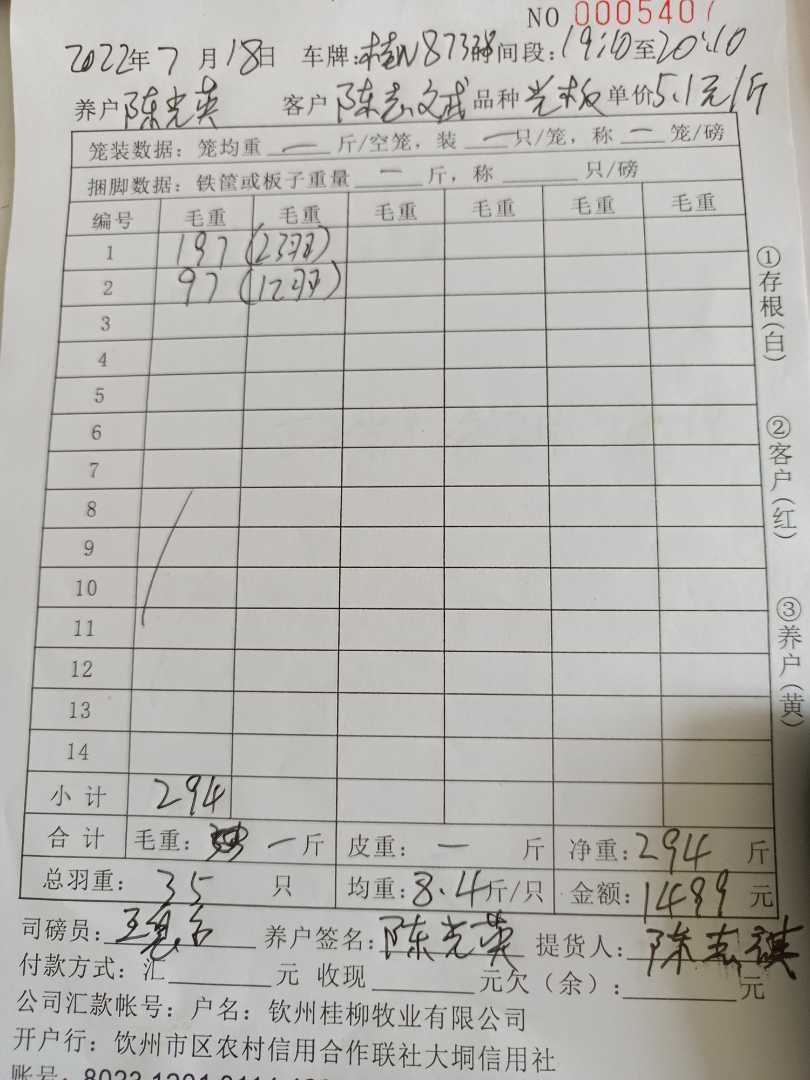 NO 0005407
2022年7月18日 车牌:桂N8733 时间段:19:10至20:10
养户 陈光英 客户 陈志文 品种 光板 单价5.1元/斤
笼装数据: 笼均重 一 斤/空笼, 装 一 只/笼, 称 一 笼/磅
捆脚数据: 铁筐或板子重量 一 斤, 称 只/磅
编号 毛重 毛重 毛重 毛重 毛重 毛重
1 197 (23羽)
2 97 (12羽)
3
4
5
6
7
8
9
10
11
12
13
14
小计 294
合计 毛重: 一斤 皮重: 一 斤 净重:294 斤
总羽重: 35 只 均重:8.4斤/只 金额:1499 元
司磅员: 王 养户签名:陈光英 提货人: 陈志
付款方式: 汇 元 收现 元欠(余): 元
公司汇款帐号: 户名: 钦州桂柳牧业有限公司
开户行: 钦州市区农村信用合作联社大垌信用社
账号: 8023 1201 0114
①存根(白)
②客户(红)
③养户(黄)